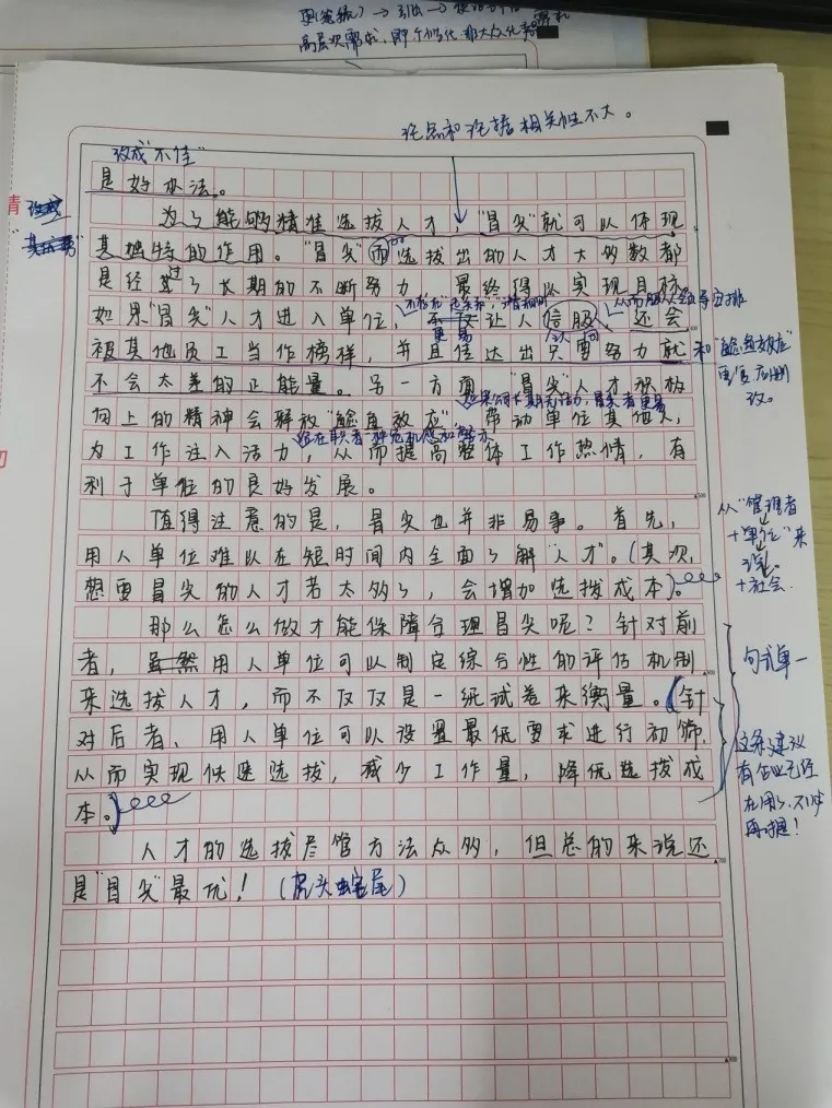 高层次需求,即个性化非大众化
论点和论据相关性不大。
改成"不佳"
是好办法。
为了能够精准选拔人才,"冒尖"就可以体现
改成
其独特的作用。"冒尖"而选拔出的人才大多数都
是经过了长期的不断努力,最终得以实现目标
如果"冒尖"人才进入单位,不仅让人信服,还会
更易
认同
被其他员工当作榜样,并且传达出只要努力就
和"鲶鱼效应"
不会太差的正能量。另一方面"冒尖"人才积极
改。
向上的精神会释放"鲶鱼效应",带动单位其他人,
给在职者一种危机感和
为工作注入活力,从而提高整体工作热情,有
利于单位的良好发展。
值得注意的是,冒尖也并非易事。首先,
从"管理者
+单位"来
说。
+社会
用人单位难以在短时间内全面了解"人才"。(其次,
想要冒尖的人才若太多了,会增加选拔成本)。
那么怎么做才能保障合理冒尖呢?针对前
者,虽然用人单位可以制定综合性的评估机制
句式单一
来选拔人才,而不仅仅是一纸试卷来衡量。(针
对后者、用人单位可以设置最低要求进行初筛,
从而实现快速选拔,减少工作量,降低选拔成
本。)
这条建议
有企业已经
在用了,不必
再提!
人才的选拔尽管方法众多,但总的来说还
是"冒尖"最优!(虎头蛇尾)